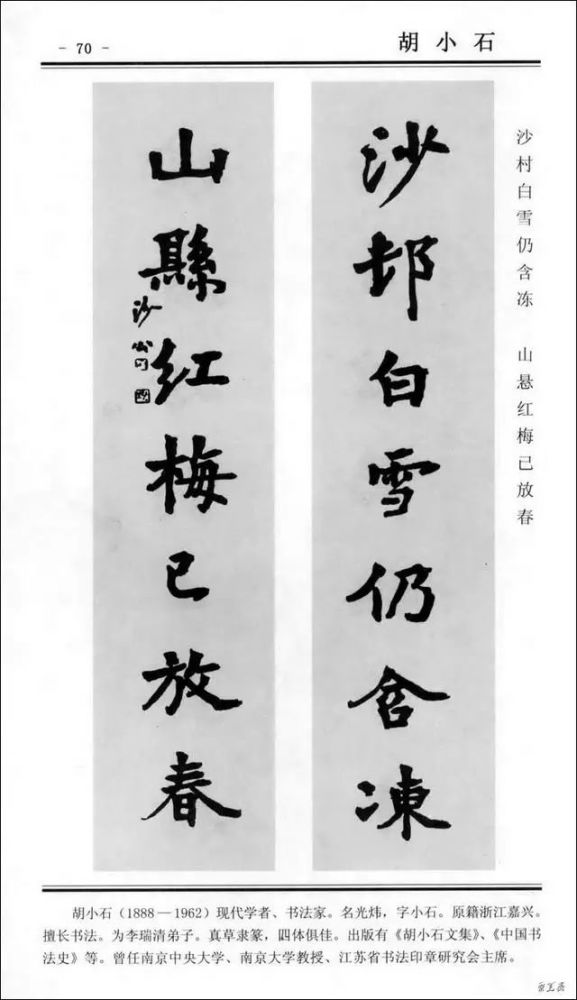 - 70 -
胡小石
沙村白雪仍含冻 山悬红梅已放春
沙邨白雪仍含凍
山縣红梅已放春
沙公
胡小石(1888—1962)现代学者、书法家。名光炜,字小石。原籍浙江嘉兴。
擅长书法。为李瑞清弟子。真草隶篆,四体俱佳。出版有《胡小石文集》、《中国书
法史》等。曾任南京中央大学、南京大学教授、江苏省书法印章研究会主席。